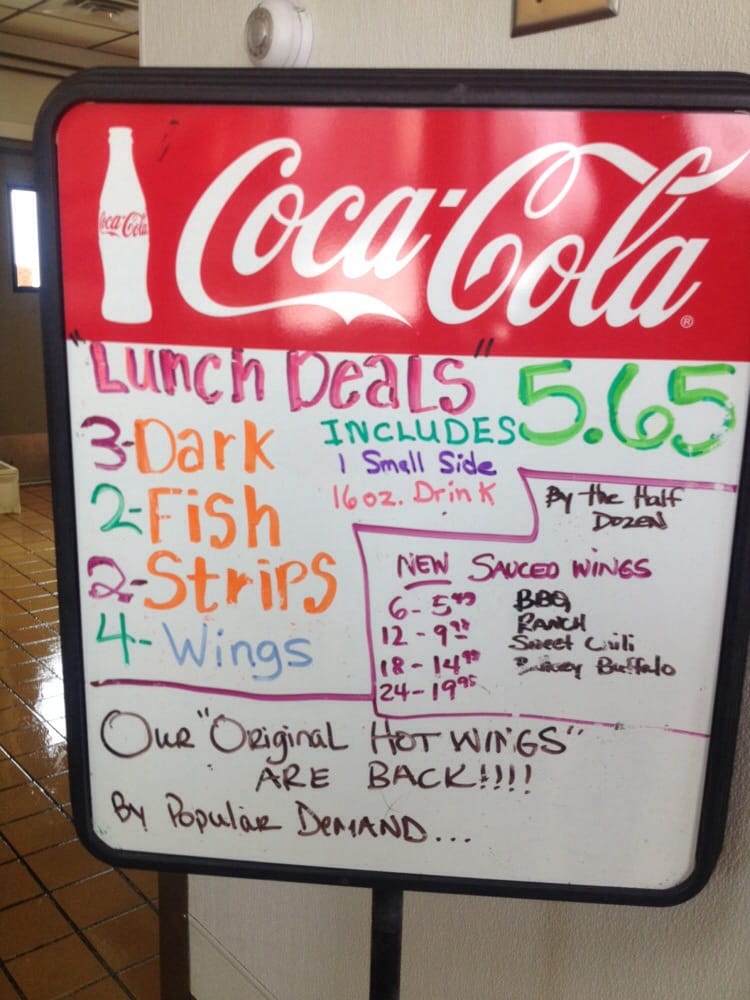 Coca-Cola
Coca-Cola®
"Lunch Deals" 5.65
3-Dark
2-Fish
2-Strips
4-Wings
INCLUDES
1 Small Side
16 oz. Drink
By the Half
Dozen
NEW SAUCED WINGS
6-5.99
12-9.98
18-14.98
24-19.95
BBQ
RANCH
Sweet Chili
Buffalo
Our "Original Hot Wings"
ARE BACK!!!!
By Popular Demand...